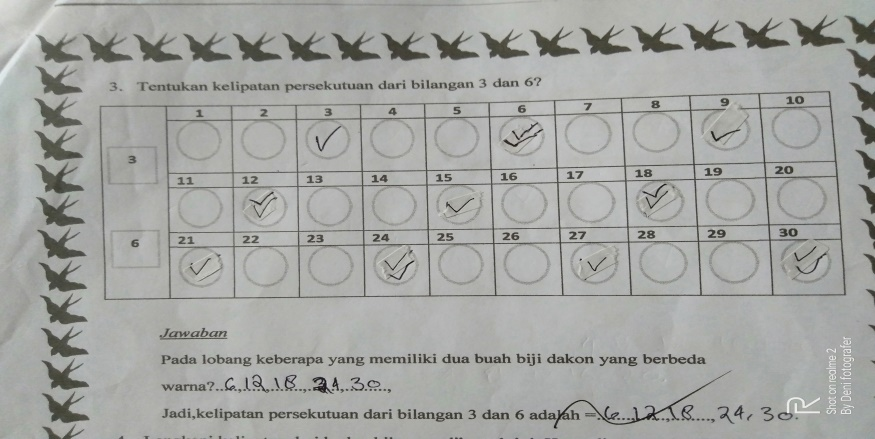 3. Tentukan kelipatan persekutuan dari bilangan 3 dan 6?
1 2 3 4 5 6 7 8 9 10
3
11 12 13 14 15 16 17 18 19 20
6
21 22 23 24 25 26 27 28 29 30
Jawaban
Pada lobang keberapa yang memiliki dua buah biji dakon yang berbeda
warna?..6,12,18, 24, 30...,
Jadi,kelipatan persekutuan dari bilangan 3 dan 6 adalah =..6...12,.18....,24, 30.
Shot on realme 2
By Deni fotografer